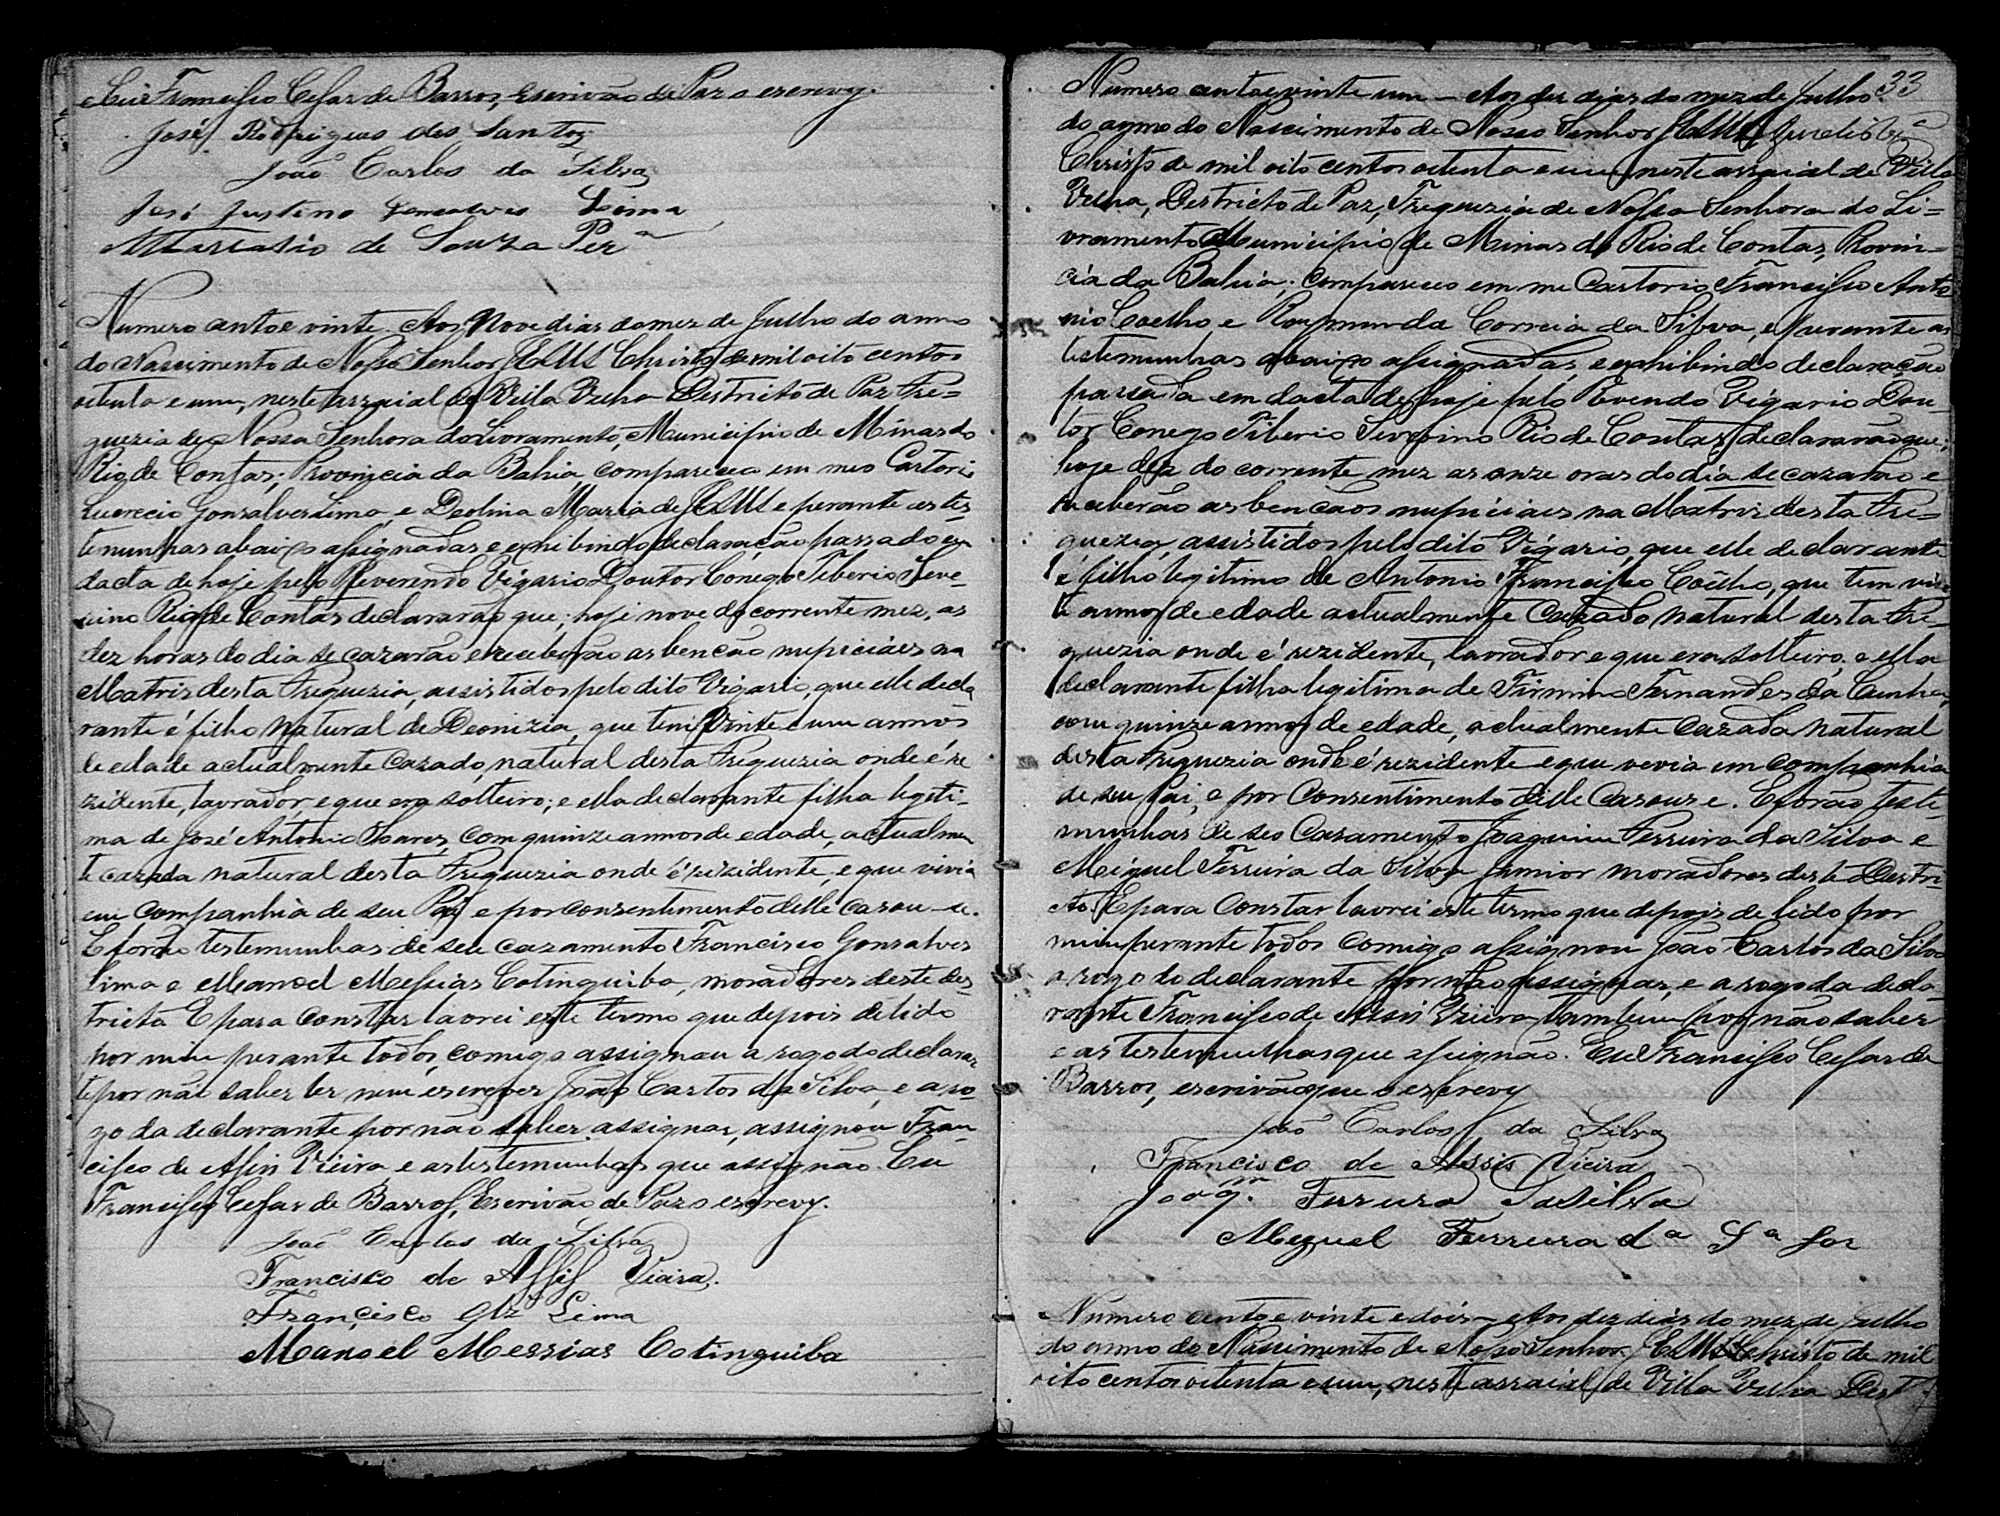 Eu Francisco Cesar de Barros, Escrivão de Paz o escrevy.
José Rodrigues dos Santos
João Carlos da Silva
José Justino Gonsalves Lima
de Souza Per.a
Numero cento e vinte. Aos Nove dias do mez de Julho do anno
do Nascimento de Nosso Senhor JESUS Christo de mil oito centos
oitenta e um, neste arraial de Villa Velha Destricto de Paz Fre=
guezia de Nossa Senhora do Livramento, Municipio de Minas do
Rio de Contas, Provincia da Bahia, compareceu em meo Cartorio
Lucrecio Gonsalves Lima, e Deolina Maria de JESUS e perante as tes=
temunhas abaixo assignadas, e exhibindo declaração passado em
dacta de hoje pelo Reverendo Vigario Doutor Conego Tiberio Seve=
rino Rio de Contas declararão que; hoje nove do corrente mez, as
dez horas do dia se cazarão e receberão as bencão nupiciáes na
Matriz desta Freguezia, assistidos pelo dito Vigario, que elle decla
rante é filho Natural de Deonizia, que tem Vinte e um annos
de edade actualmente Cazado, natural desta Freguezia onde é re
zidente, lavrador, e que era solteiro; e ella declarante filha legiti=
ma de José Antonio Soares, com quinze annos de edade, actualmen
te cazada natural desta Freguezia onde é rezidente, e que vivia
em Companhia de seu Pai e por consentimento delle casou-se.
E forão testemunhas de seu cazamento Francisco Gonsalves
Lima e Manoel Messias Cotinguiba, moradores deste des=
tricto E para Constar lavrei este termo que depois de lido
por mim perante todos, comigo assignou a rogo do declaran
te por não saber ler nem escrever João Carlos da Silva, e a ro
go da declarante por não saber assignar, assignou Fran=
cisco de Assis Vieira e as testemunhas que assignão. Eu
Francisco Cesar de Barros, Escrivão de Paz o escrevy.
João Carlos da Silva
Francisco de Assis Vieira.
Francisco Glz Lima
Manoel Messias Cotinguiba
33
Numero cento e vinte um – Aos dez dias do mez de Julho
do anno do Nascimento de Nosso Senhor JESUS
Christo de mil oito centos oitenta e um neste arraial de Villa
Velha, Destricto de Paz, Freguezia de Nossa Senhora do Li=
vramento Municipio de Minas do Rio de Contas, Provin=
cia da Bahia; compareceo em meo Cartorio Francisco Anto
nio Coelho e Raymunda Correia da Silva, e perante as
testemunhas abaixo assignadas, e exhibindo declaração
passada em dacta de hoje pelo Revendo Vigario Dou=
tor Conego Tiberio Severino Rio de Contas, declararão que;
hoje dez do corrente mez as onze oras do dia se cazarão e
receberão as bencãos nupiciaes na Matriz desta Fre=
guezia, assistidos pelo dito Vigario, que elle declarante
é filho legitimo de Antonio Francisco Coêlho, que tem vin
te annos de edade actualmente Cazado natural desta Fre=
guezia onde é rezidente, lavrador e que era solteiro; e ella
declarante filha legitima de Firmino Fernandes da Cunha,
com quinze annos de edade, actualmente cazada natural
desta Freguezia onde é rezidente e que vevia em companhia
de seu Pai, e por Consentimento delle Casouse. E forão teste
munhas de seo Casamento Joaquim Ferreira da Silva e
Miguel Ferreira da Silva Junior moradores deste Destri
cto E para Constar lavrei este termo que depois de lido por
mim perante todos comigo assignou João Carlos da Silva
a rogo do declarante por não assignar, e a rogo da decla=
rante Francisco de Assis Vieira tambem por não saber
e as testemunhas que assignão. Eu Francisco Cesar de
Barros, escrivão que o escrevy
João Carlos da Silva
Francisco de Assis Vieira
Joaq.m Ferrera da Silva
Meguel Ferrera da S.a Jor
Numero cento e vinte e dois – Aos dez dias do mez de Julho
do anno do Nascimento de Nosso Senhor JESUS Christo de mil
oito centos oitenta e um, neste arraial de Villa Velha Dest